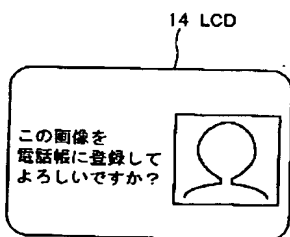 14 LCD
この画像を
電話帳に登録して
よろしいですか?